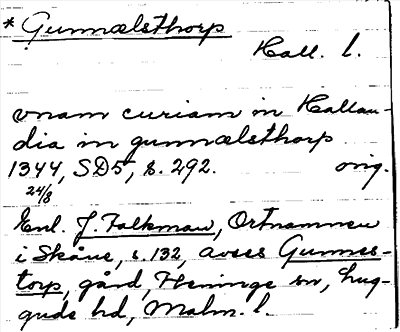 * Gunnælsthorp
Hall. l.
vnam curiam in Hallan-
dia in gunnælsthorp
1344, SD5, s. 292. orig.
24/8
Enl. J. Falkman, Ortnamnen
i Skåne, s. 132, avses Gunnes-
torp, gård, Heninge sn, Lug-
gude hd, Malm. l.